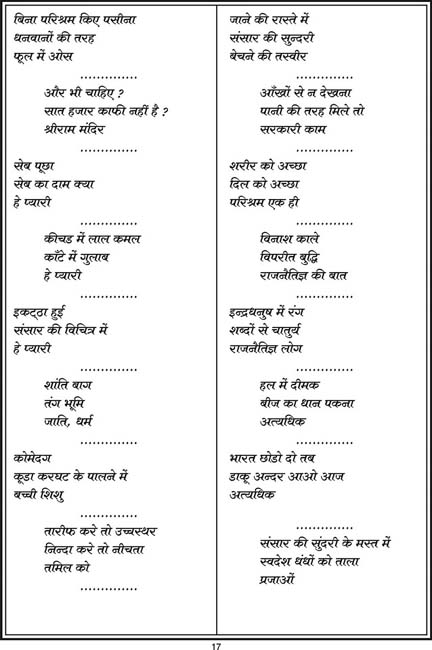 बिना परिश्रम किए पसीना
धनवानों की तरह
फूल में ओस
..............
और भी चाहिए ?
सात हजार काफी नहीं है ?
श्रीराम मंदिर
..............
सेब पूछा
सेब का दाम क्या
हे प्यारी
..............
कीचड में लाल कमल
काँटे में गुलाब
हे प्यारी
..............
इकट्ठा हुई
संसार की विचित्र में
हे प्यारी
..............
शांति बाग
तंग भूमि
जाति, धर्म
..............
कोमेदग
कूडा करघट के पालने में
बच्ची शिशु
..............
तारीफ करे तो उच्चस्थर
निन्दा करे तो नीचता
तमिल को
..............
जाने की रास्ते में
संसार की सुन्दरी
बेचने की तस्वीर
..............
आँखों से न देखना
पानी की तरह मिले तो
सरकारी काम
..............
शरीर को अच्छा
दिल को अच्छा
परिश्रम एक ही
..............
विनाश काले
विपरीत बुद्धि
राजनैतिज्ञ की बात
..............
इन्द्रधनुष में रंग
शब्दों से चातुर्य
राजनैतिज्ञ लोग
..............
हल में दीमक
बीज का धान पकना
अत्यधिक
..............
भारत छोडो दो तब
डाकू अन्दर आओ आज
अत्यधिक
..............
संसार की सुंदरी के मस्त में
स्वदेश धंधों को ताला
प्रजाओं
17